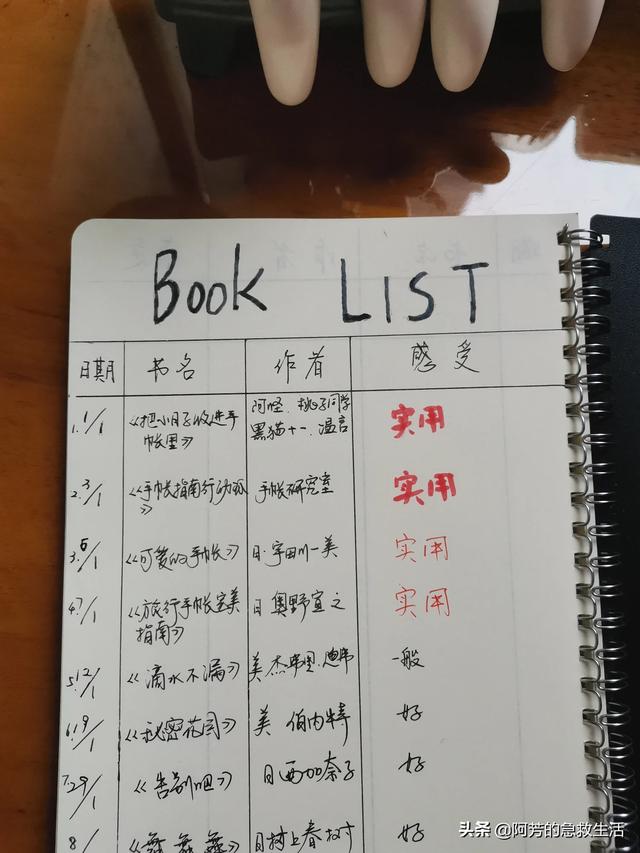 BOOK LIST
日期 书名 作者 感受
1. 1/1 《把小日子收进手帐里》 阿怪、桃子同学 黑猫十一、温言 实用
2. 3/1 《手帐指南行动派》 手帐研究室 实用
3. 6/1 《可爱的手帐》 日·宇田川一美 实用
4. 7/1 《旅行手帐完美指南》 日 奥野宣之 实用
5. 12/1 《滴水不漏》 美 杰弗里·迪弗 一般
6. 19/1 《秘密花园》 美 伯内特 好
7. 29/1 《告别吧》 日 西加奈子 好
8/ 《舞 舞 舞》 日 村上春树 好
头条 @阿芳的急救生活